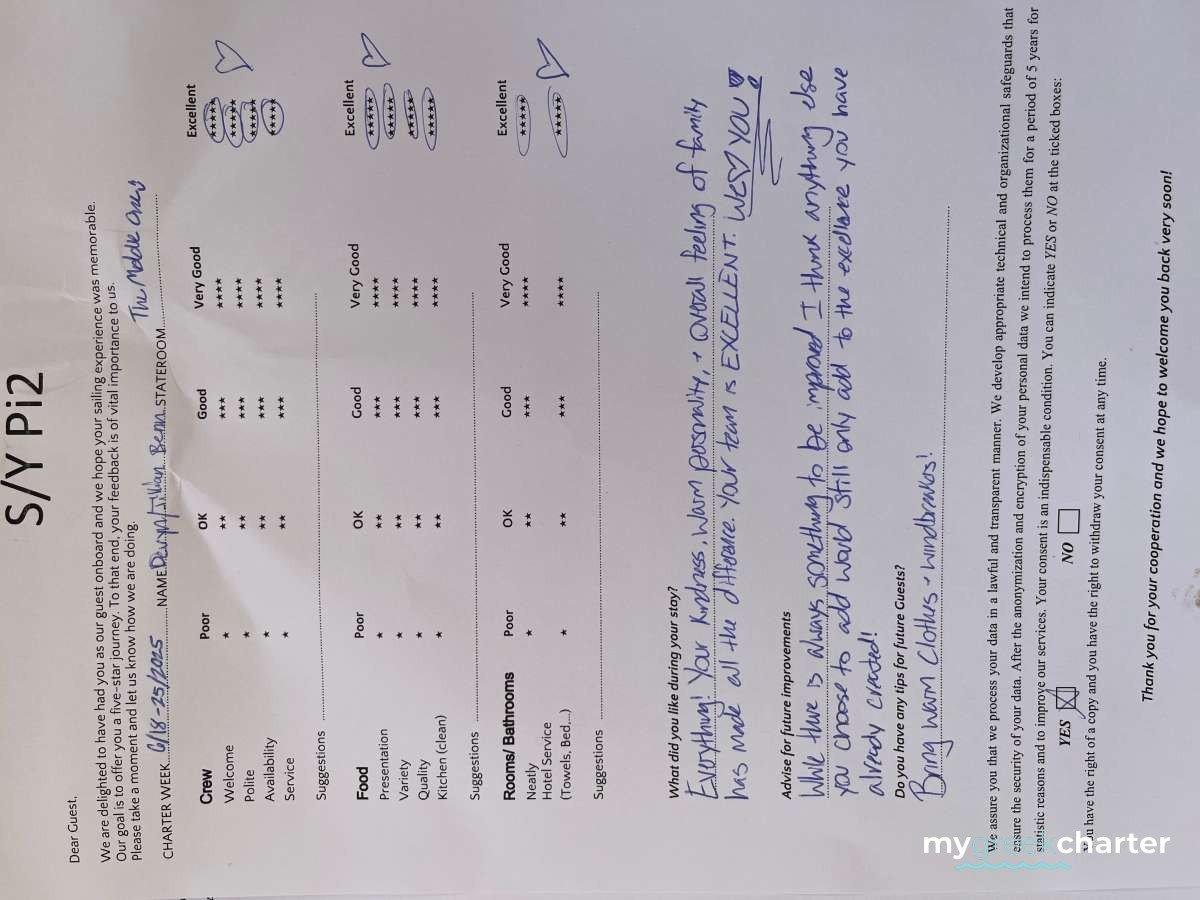 S/Y Pi2
Dear Guest,
We are delighted to have had you as our guest onboard and we hope your sailing experience was memorable.
Our goal is to offer you a five-star journey. To that end, your feedback is of vital importance to us.
Please take a moment and let us know how we are doing.
CHARTER WEEK 6/18-25/2025 NAME Devyn/Jillian STATEROOM The Middle Ones
Crew Poor OK Good Very Good Excellent
Welcome ★ ★★ ★★★ ★★★★ ★★★★★
Polite ★ ★★ ★★★ ★★★★ ★★★★★
Availability ★ ★★ ★★★ ★★★★ ★★★★★
Service ★ ★★ ★★★ ★★★★ ★★★★★
Suggestions
Food Poor OK Good Very Good Excellent
Presentation ★ ★★ ★★★ ★★★★ ★★★★★
Variety ★ ★★ ★★★ ★★★★ ★★★★★
Quality ★ ★★ ★★★ ★★★★ ★★★★★
Kitchen (clean) ★ ★★ ★★★ ★★★★ ★★★★★
Suggestions
Rooms/ Bathrooms Poor OK Good Very Good Excellent
Neatly ★ ★★ ★★★ ★★★★ ★★★★★
Hotel Service
(Towels, Bed,..) ★ ★★ ★★★ ★★★★ ★★★★★
Suggestions
What did you like during your stay?
Everything! Your kindness, warm personality, + overall feeling of family
has made all the difference. Your team is EXCELLENT. We ♡ YOU!
Advise for future improvements
While there is always something to be improved I think anything else
you choose to add would still only add to the excellence you have
already created!
Do you have any tips for future Guests?
Bring warm clothes + windbrakes!
We assure you that we process your data in a lawful and transparent manner. We develop appropriate technical and organizational safeguards that
ensure the security of your data. After the anonymization and encryption of your personal data we intend to process them for a period of 5 years for
statistic reasons and to improve our services. Your consent is an indispensable condition. You can indicate YES or NO at the ticked boxes:
YES ☒ NO ☐
You have the right of a copy and you have the right to withdraw your consent at any time.
Thank you for your cooperation and we hope to welcome you back very soon!
mygreekcharter